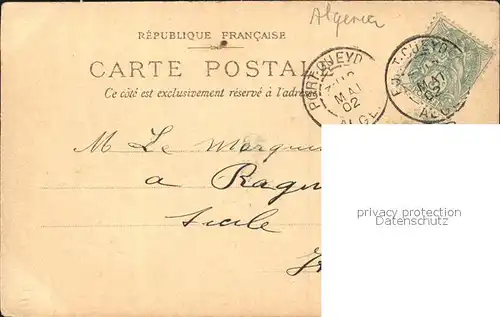 Algeria
RÉPUBLIQUE FRANÇAISE
CARTE POSTAL
Ce côté est exclusivement réservé à l'adresse
PORT-GUEYD
MAI
02
ALGE
T-GUEYD
MAI
02
ALG
M Le Marqui
a Ragu
Sicile
privacy protection
Datenschutz